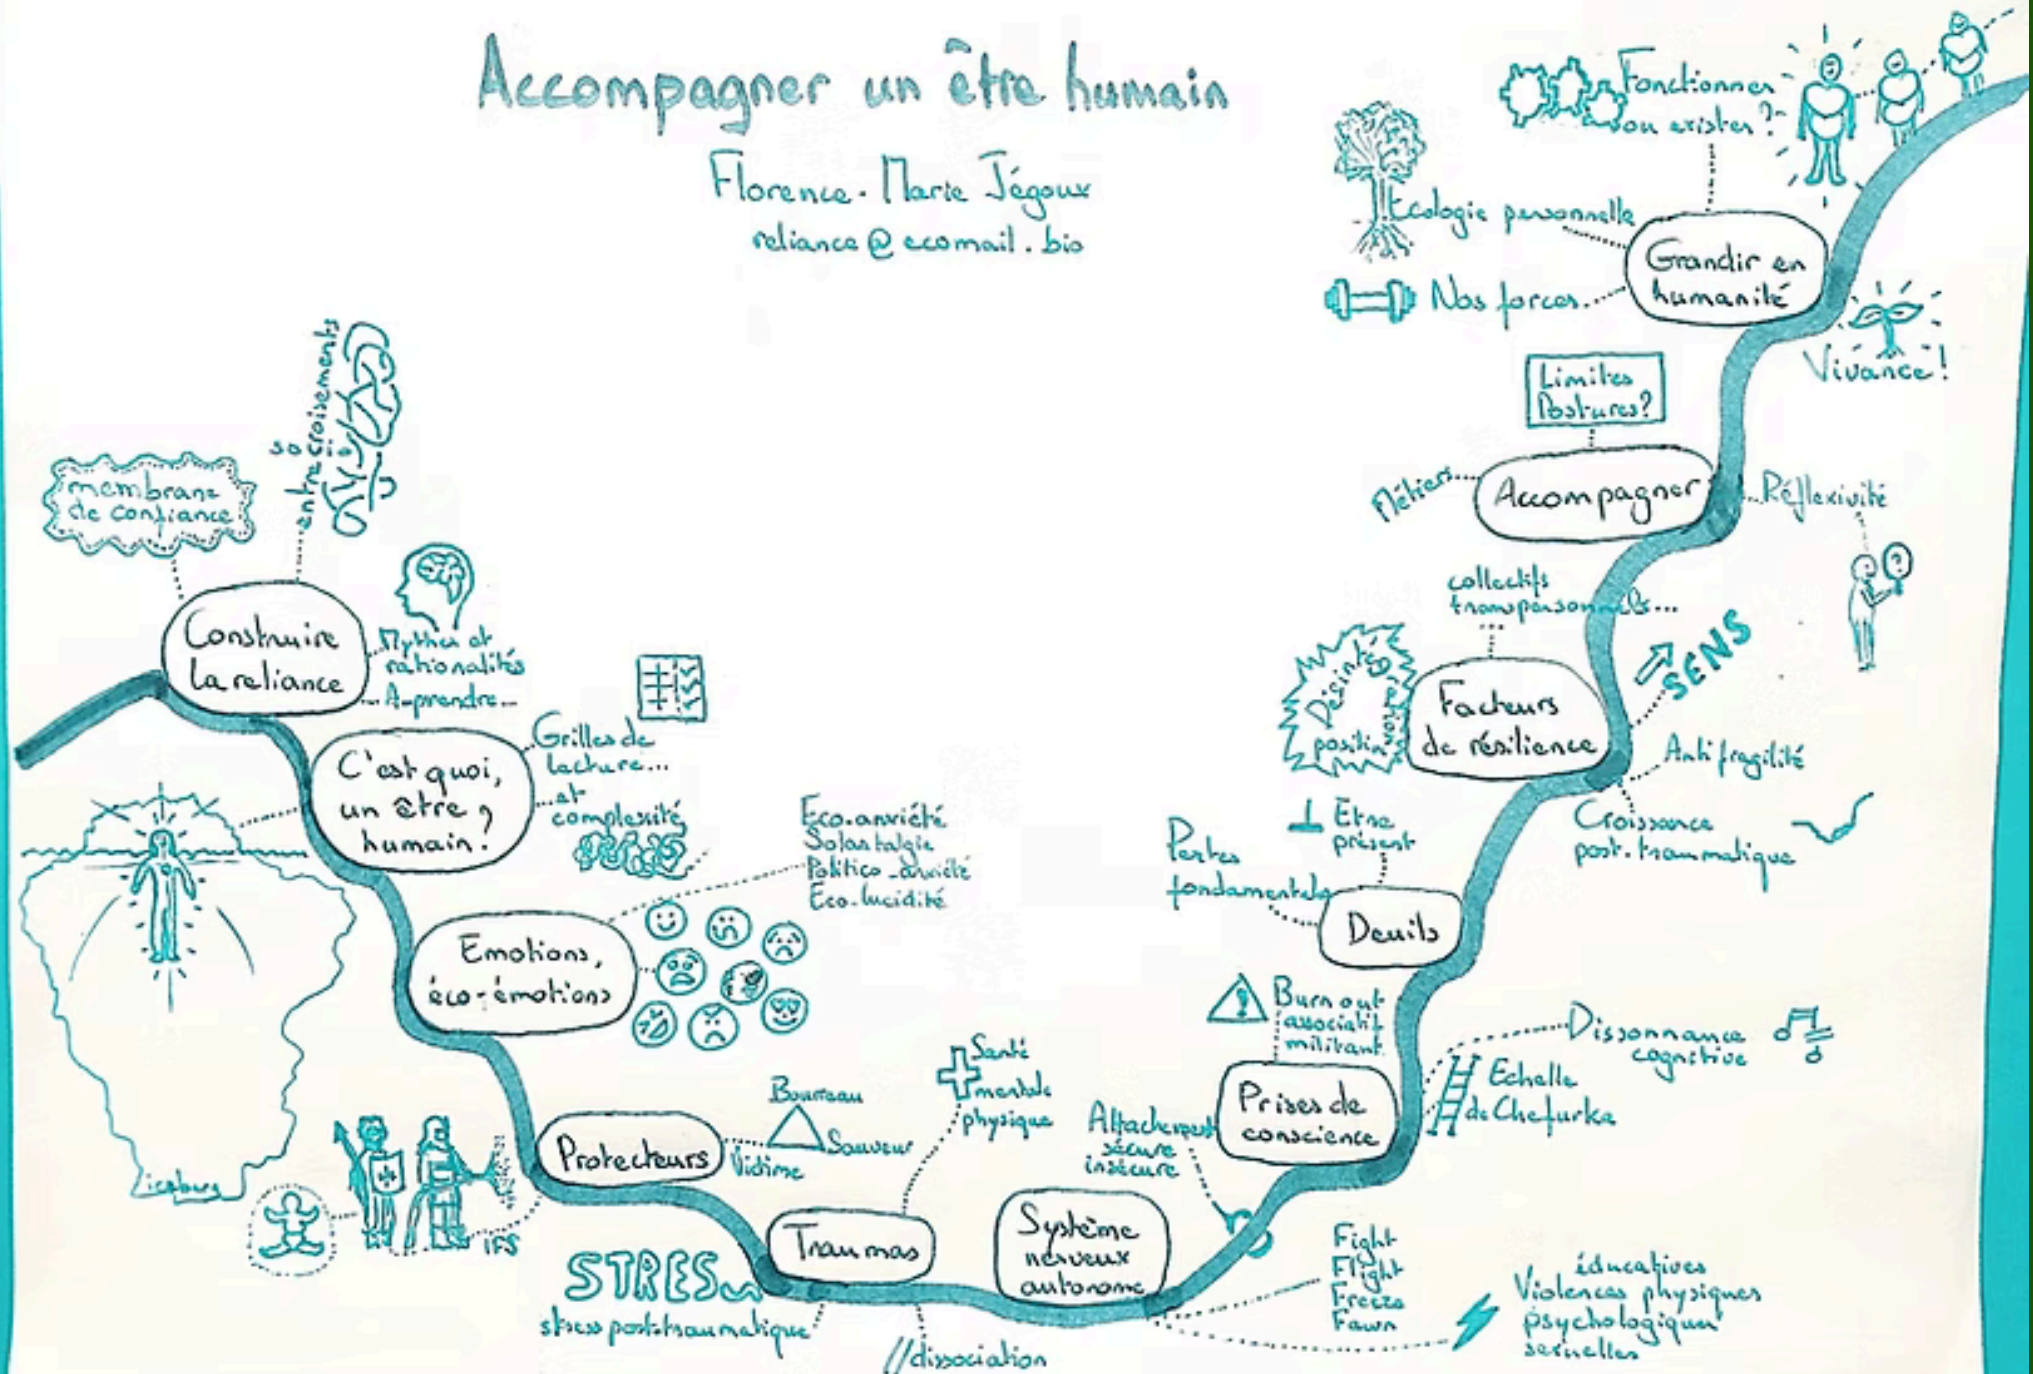 Accompagner un être humain
Florence-Marie Jégoux
reliance@ecomail.bio
membrane
de confiance
so
entrecroisements
Construire
la reliance
Mythes et
rationalités
A-prendre...
C'est quoi,
un être
humain?
Grilles de
lecture...
et
complexité
iceberg
Emotions,
éco-émotions
Eco-anxiété
Solastalgie
Politico-anxiété
Eco-lucidité
Protecteurs
Bourreau
Sauveur
Victime
IFS
Traumas
Santé
mentale
physique
STRESS
stress post-traumatique
//dissociation
Système
nerveux
autonome
Attachement
sécure
insécure
Fight
Flight
Freeze
Fawn
éducatives
Violences physiques
psychologiques
sexuelles
Prises de
conscience
Burn out
associatif
militant
Dissonnance
cognitive
Echelle
de Chefurka
Deuils
Pertes
fondamentales
Etre
présent
Facteurs
de résilience
Désintégration
positive
collectifs
transpersonnels...
SENS
Antifragilité
Croissance
post-traumatique
Accompagner
Métiers
Limites
Postures?
Réflexivité
?
Grandir en
humanité
Nos forces
Ecologie personnelle
Fonctionner
ou exister?
Vivance!